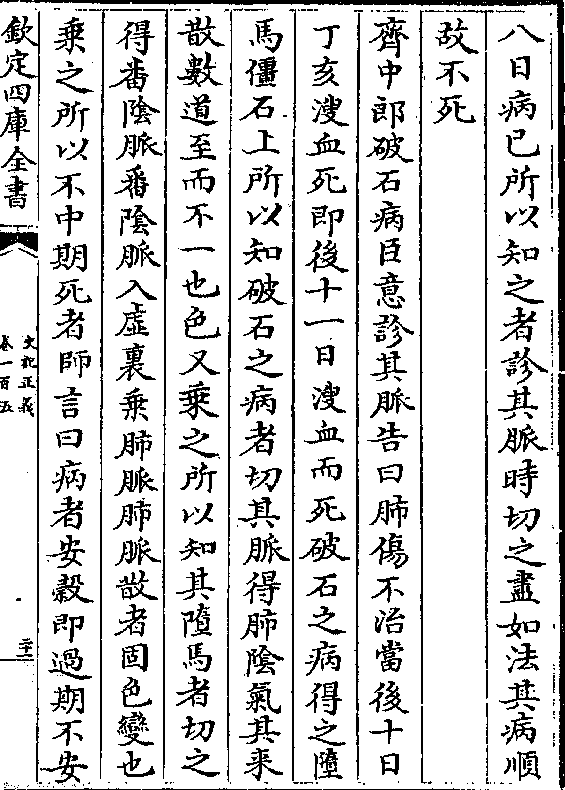 八日病已所以知之者診其脈時切之盡如法其病順
故不死
齊中郎破石病臣意診其脈告曰肺傷不治當後十日
丁亥溲血死即後十一日溲血而死破石之病得之墮
馬僵石上所以知破石之病者切其脈得肺陰氣其来
散數道至而不一也色又乗之所以知其墮馬者切之
得番陰脈番陰脈入虚裏乗肺脈肺脈散者固色變也
乗之所以不中期死者師言曰病者安穀即過期不安
欽定四庫全書
史記正義
卷一百五
二十一